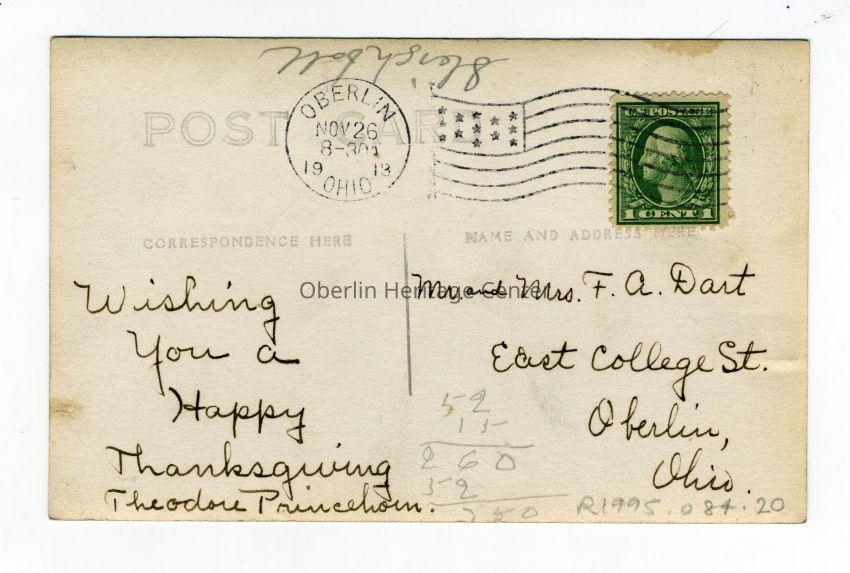 POST CARD
OBERLIN
NOV 26
8-30A
19 13
OHIO
U.S. POSTAGE
1 CENT 1
CORRESPONDENCE HERE
NAME AND ADDRESS HERE
Oberlin Heritage Center
Wishing
You a
Happy
Thanksgiving
Theodore Princehorn.
Mr. and Mrs. F. A. Dart
East College St.
Oberlin,
Ohio.
52
15
260
52
780
R1995.084.20